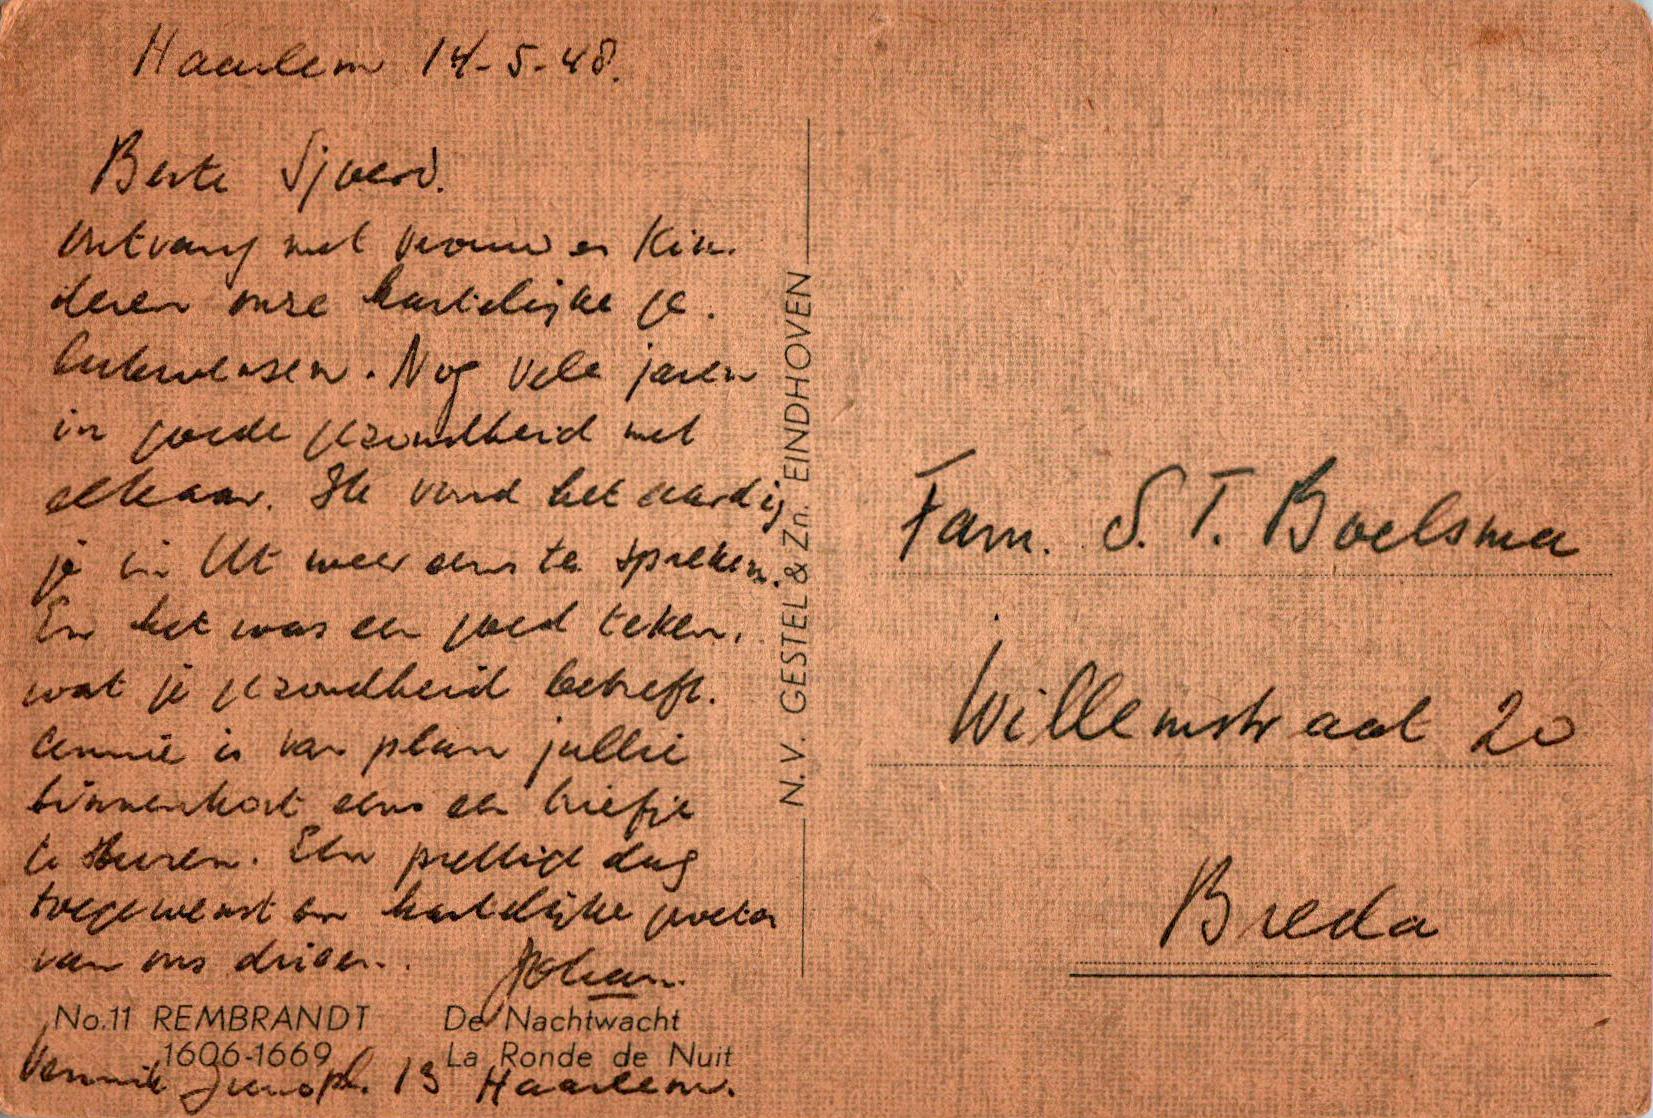 Haarlem 14-5-48.
Beste Sjoerd.
Ontvang met vrouw en Kin-
deren onze hartelijke ge-
lukwensen. Nog vele jaren
in goede gezondheid met
elkaar. Ik vond het aardig
je in Ut weer eens te spreken.
En het was een goed teken,
wat je gezondheid betreft.
Annie is van plan jullie
binnenkort eens een briefje
te sturen. Een prettige dag
toegewenst en hartelijke groeten
van ons drieën.. Johan.
No.11 REMBRANDT
1606-1669
De Nachtwacht
La Ronde de Nuit
Junopl. 13 Haarlem.
N.V. GESTEL & Zn. EINDHOVEN
Fam. S. T. Boelsma
Willemstraat 20
Breda